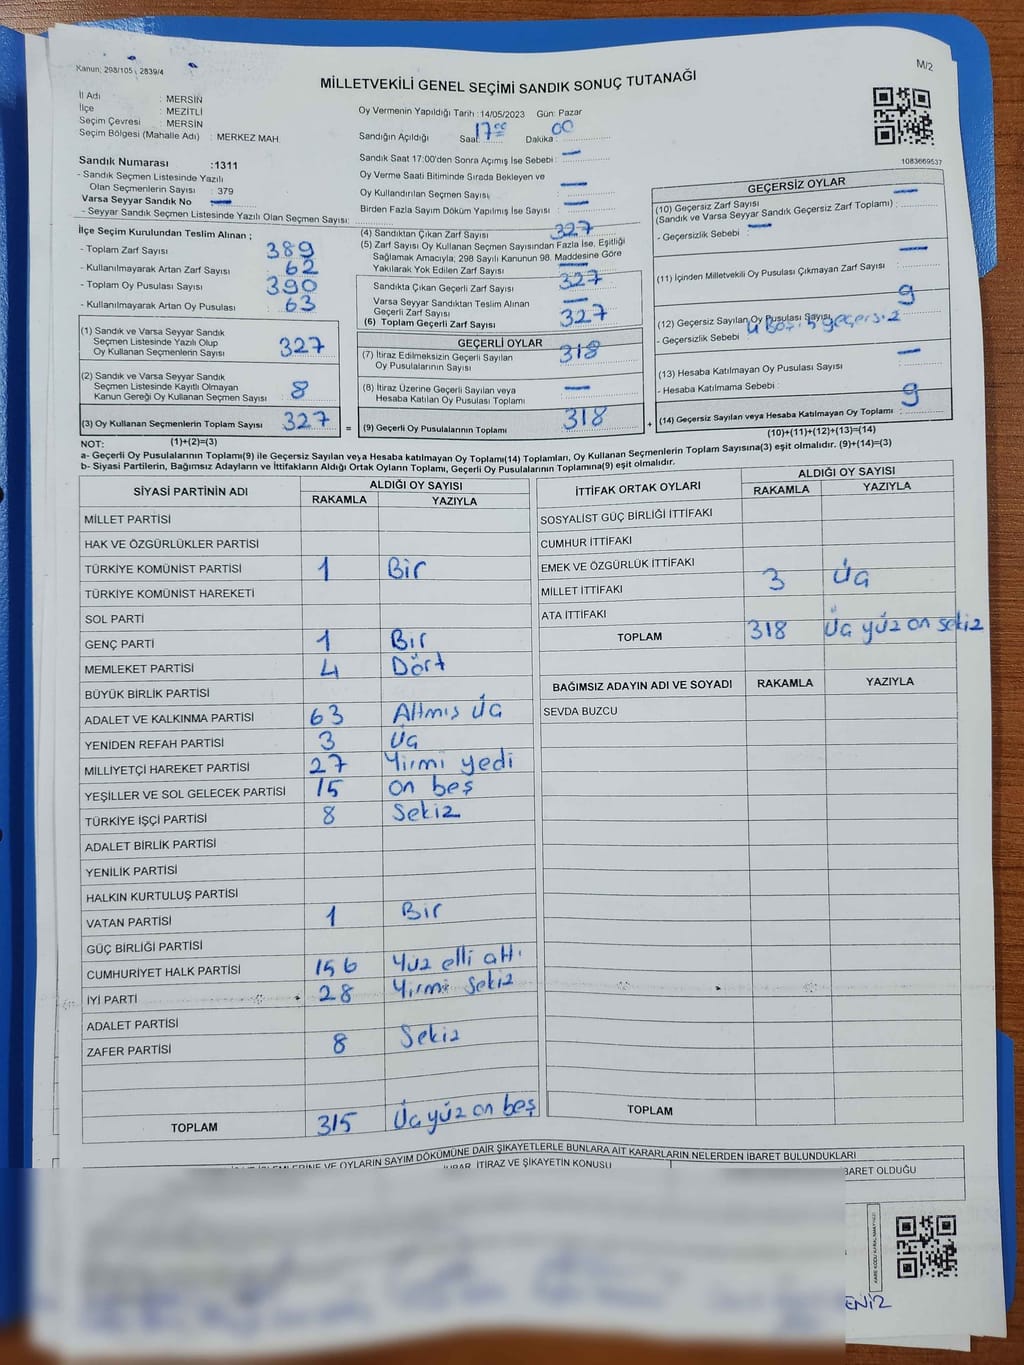 Kanun: 298/105 , 2839/4
M/2
MİLLETVEKİLİ GENEL SEÇİMİ SANDIK SONUÇ TUTANAĞI
İl Adı : MERSİN
İlçe : MEZİTLİ
Seçim Çevresi : MERSİN
Seçim Bölgesi (Mahalle Adı) : MERKEZ MAH.
Sandık Numarası :1311
- Sandık Seçmen Listesinde Yazılı
Olan Seçmenlerin Sayısı : 379
Varsa Seyyar Sandık No —
- Seyyar Sandık Seçmen Listesinde Yazılı Olan Seçmen Sayısı:
Oy Vermenin Yapıldığı Tarih :14/05/2023 Gün: Pazar
Sandığın Açıldığı Saat: 17 00 Dakika: 00
Sandık Saat 17:00'den Sonra Açımış İse Sebebi : —
Oy Verme Saati Bitiminde Sırada Bekleyen ve
Oy Kullandırılan Seçmen Sayısı —
Birden Fazla Sayım Döküm Yapılmış İse Sayısı —
1083669537
İlçe Seçim Kurulundan Teslim Alınan ;
- Toplam Zarf Sayısı : 389
- Kullanılmayarak Artan Zarf Sayısı : 62
- Toplam Oy Pusulası Sayısı : 390
- Kullanılmayarak Artan Oy Pusulası : 63
(1) Sandık ve Varsa Seyyar Sandık
Seçmen Listesinde Yazılı Olup
Oy Kullanan Seçmenlerin Sayısı : 327
(2) Sandık ve Varsa Seyyar Sandık
Seçmen Listesinde Kayıtlı Olmayan
Kanun Gereği Oy Kullanan Seçmen Sayısı : 8
(3) Oy Kullanan Seçmenlerin Toplam Sayısı 327
(4) Sandıktan Çıkan Zarf Sayısı 327
(5) Zarf Sayısı Oy Kullanan Seçmen Sayısından Fazla İse, Eşitliği
Sağlamak Amacıyla; 298 Sayılı Kanunun 98. Maddesine Göre
Yakılarak Yok Edilen Zarf Sayısı —
Sandıkta Çıkan Geçerli Zarf Sayısı : 327
Varsa Seyyar Sandıktan Teslim Alınan
Geçerli Zarf Sayısı —
(6) Toplam Geçerli Zarf Sayısı 327
GEÇERLİ OYLAR
(7) İtiraz Edilmeksizin Geçerli Sayılan
Oy Pusulalarının Sayısı : 318
(8) İtiraz Üzerine Geçerli Sayılan veya
Hesaba Katılan Oy Pusulası Toplamı —
= (9) Geçerli Oy Pusulalarının Toplamı 318 +
GEÇERSİZ OYLAR
(10) Geçersiz Zarf Sayısı
(Sandık ve Varsa Seyyar Sandık Geçersiz Zarf Toplamı) : —
- Geçersizlik Sebebi : —
(11) İçinden Milletvekili Oy Pusulası Çıkmayan Zarf Sayısı —
(12) Geçersiz Sayılan Oy Pusulası Sayısı 9
- Geçersizlik Sebebi 4 Boş, 5 geçersiz
(13) Hesaba Katılmayan Oy Pusulası Sayısı —
- Hesaba Katılmama Sebebi :
(14) Geçersiz Sayılan veya Hesaba Katılmayan Oy Toplamı 9
NOT: (1)+(2)=(3)
(10)+(11)+(12)+(13)=(14)
a- Geçerli Oy Pusulalarının Toplamı(9) ile Geçersiz Sayılan veya Hesaba katılmayan Oy Toplamı(14) Toplamları, Oy Kullanan Seçmenlerin Toplam Sayısına(3) eşit olmalıdır. (9)+(14)=(3)
b- Siyasi Partilerin, Bağımsız Adayların ve İttifakların Aldığı Ortak Oyların Toplamı, Geçerli Oy Pusulalarının Toplamına(9) eşit olmalıdır.
SİYASİ PARTİNİN ADI ALDIĞI OY SAYISI
RAKAMLA YAZIYLA
MİLLET PARTİSİ
HAK VE ÖZGÜRLÜKLER PARTİSİ
TÜRKİYE KOMÜNİST PARTİSİ 1 Bir
TÜRKİYE KOMÜNİST HAREKETİ
SOL PARTİ
GENÇ PARTİ 1 Bir
MEMLEKET PARTİSİ 4 Dört
BÜYÜK BİRLİK PARTİSİ
ADALET VE KALKINMA PARTİSİ 63 Altmış Üç
YENİDEN REFAH PARTİSİ 3 Üç
MİLLİYETÇİ HAREKET PARTİSİ 27 Yirmi yedi
YEŞİLLER VE SOL GELECEK PARTİSİ 15 on beş
TÜRKİYE İŞÇİ PARTİSİ 8 Sekiz
ADALET BİRLİK PARTİSİ
YENİLİK PARTİSİ
HALKIN KURTULUŞ PARTİSİ
VATAN PARTİSİ 1 Bir
GÜÇ BİRLİĞİ PARTİSİ
CUMHURİYET HALK PARTİSİ 156 Yüz elli altı
İYİ PARTİ 28 Yirmi Sekiz
ADALET PARTİSİ
ZAFER PARTİSİ 8 Sekiz
TOPLAM 315 Üç yüz on beş
İTTİFAK ORTAK OYLARI ALDIĞI OY SAYISI
RAKAMLA YAZIYLA
SOSYALİST GÜÇ BİRLİĞİ İTTİFAKI
CUMHUR İTTİFAKI
EMEK VE ÖZGÜRLÜK İTTİFAKI
MİLLET İTTİFAKI 3 Üç
ATA İTTİFAKI
TOPLAM 318 Üç yüz on sekiz
BAĞIMSIZ ADAYIN ADI VE SOYADI RAKAMLA YAZIYLA
SEVDA BUZCU
TOPLAM
VE OYLARIN SAYIM DÖKÜMÜNE DAİR ŞİKAYETLERLE BUNLARA AİT KARARLARIN NELERDEN İBARET BULUNDUKLARI
İTİRAZ VE ŞİKAYETİN KONUSU
BARET OLDUĞU
ENİZ